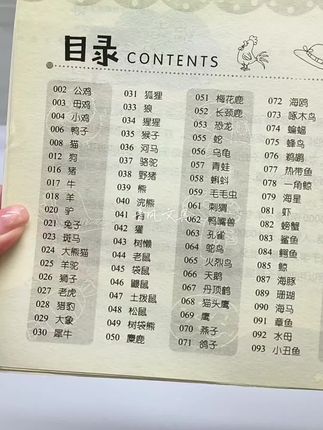 目录 CONTENTS
002 公鸡
003 母鸡
004 小鸡
006 鸭子
008 猫
012 狗
016 猪
017 牛
018 羊
020 驴
021 兔子
023 斑马
024 大熊猫
025 羊驼
026 狮子
027 老虎
028 猎豹
029 大象
030 犀牛
031 狐狸
033 狼
034 猩猩
035 猴子
036 河马
037 骆驼
038 野猪
039 熊
040 浣熊
041
042 獾
043 树懒
044 老鼠
045 袋鼠
046 鼹鼠
047 土拨鼠
048 松鼠
049 树袋熊
050 麋鹿
051 梅花鹿
052 长颈鹿
053 恐龙
055 蛇
056 乌龟
057 青蛙
058 蝌蚪
059 毛毛虫
061 刺猬
062 鸭嘴兽
063 孔雀
064 鸵鸟
065 火烈鸟
066 天鹅
067 丹顶鹤
068 猫头鹰
069 鹰
070 燕子
071 鸽子
072 海鸥
073 啄木鸟
074 蝙蝠
075 蜂鸟
076 鹈鹕
077 热带鱼
078 一角鲸
079 海星
081 虾
082 螃蟹
083 鲨鱼
084 鳄鱼
085 鲸
087 海豚
089 珊瑚
090 海马
091 章鱼
092 水母
093 小丑鱼